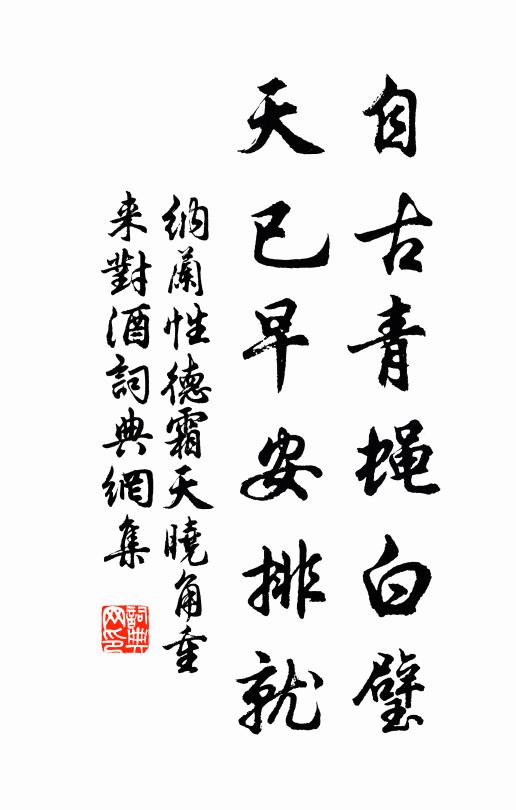 自古青蝇白璧
天已早安排就
纳蘭性德霜天曉角重
来對酒詞典網集
詞典网印